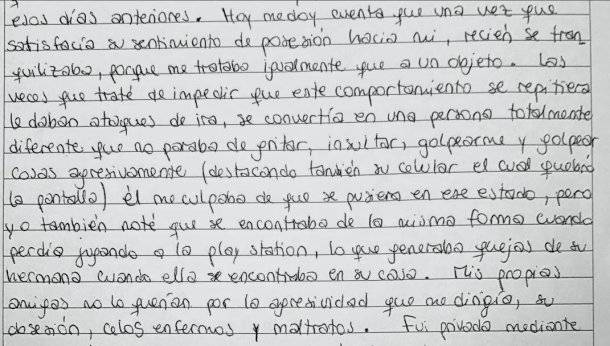 esos días anteriores. Hoy me doy cuenta que una vez que
satisfacía su sentimiento de posesión hacia mi, recién se tran
quilizaba, porque me trataba igualmente que a un objeto. Las
veces que traté de impedir que este comportamiento se repitiera
le daban ataques de ira, se convertía en una persona totalmente
diferente que no paraba de gritar, insultar, golpearme y golpear
cosas agresivamente (destacando también su celular el cual quebró
la pantalla) él me culpaba de que se pusiera en ese estado, pero
yo también noté que se encontraba de la misma forma cuando
perdía jugando a la play station, lo que generaba quejas de su
hermana cuando ella se encontraba en su casa. Mis propios
amigos no lo querían por la agresividad que me dirigía, su
obsesión, celos enfermos y maltratos. Fui privada mediante